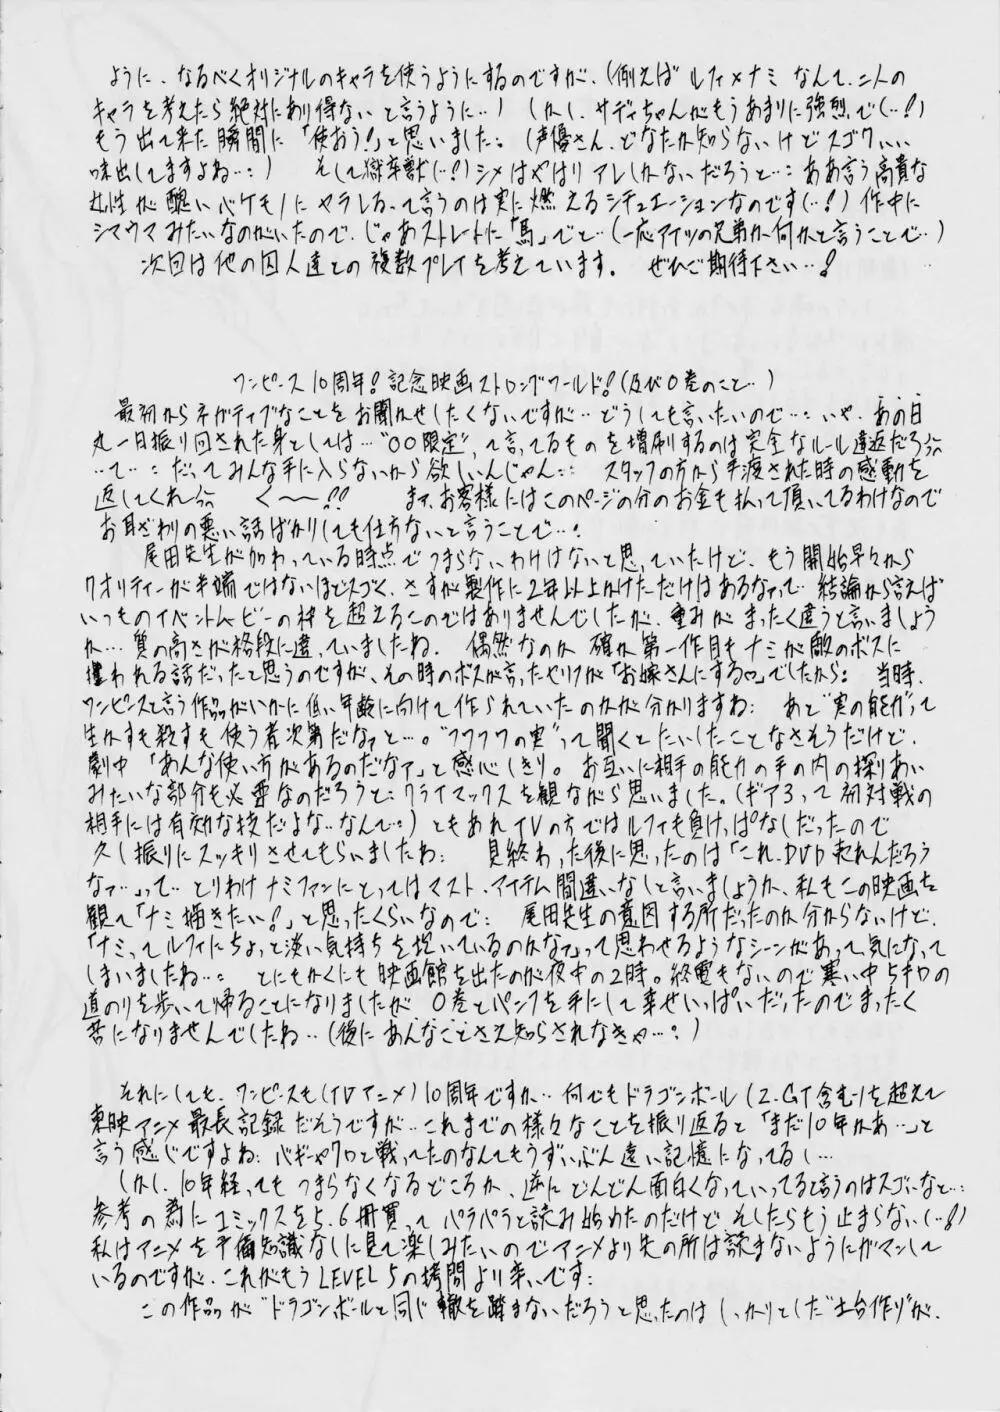 ように、なるべくオリジナルのキャラを使うようにするのですが、(例えば ルフィ×ナミ なんて、二人の
キャラを考えたら絶対にあり得ない と言うように‥) (しかし、サディちゃんがもうあまりに強烈で(‥!)
もう出て来た瞬間に「使おう!」と思いました: (声優さん、どなたか知らないけどスゴクいい
味出してますよね‥:) そして獄卒獣(‥!)シメはやはり アレしかないだろうと‥: ああ言う高貴な
女性が醜いバケモノにヤラレるって言うのは実に燃えるシチュエーションなのです(‥!)作中に
シマウマみたいなのがいたので、じゃあストレートに「馬」でと‥(一応アイツの兄弟か何かと言うことで‥)
次回は他の囚人達との複数プレイを考えています。 ぜひご期待下さい‥!
ワンピース10周年!記念映画ストロングワールド!(及び0巻のこと‥)
最初からネガティブなことをお聞かせしたくないですが‥どうしても言いたいので‥: いや、あの日
丸一日振り回された身としては‥"〇〇限定"、って言ってるものを増刷するのは完全なルール違反だろ
‥て‥: だってみんな手に入らないから欲しいんじゃん:: スタッフの方から手渡された時の感動を
返してくれ く〜!! まァ、お客様にはこのページの分のお金も払って頂いてるわけなので
お耳ざわりの悪い話ばかりしても仕方ないと言うことで‥:
尾田先生が加わっている時点でつまらないわけはないと思っていたけど、もう開始早々から
クオリティーが半端ではないほどスゴく、さすが製作に2年以上かけただけはあるなって‥ 結論から言えば
いつものイベントムービーの枠を超えるものではありませんでしたが、重みがまったく違うと言いましょう
か‥ 質の高さが格段に違っていましたね。 偶然なのか 確か第一作目もナミが敵のボスに
攫われる話だったと思うのですが、その時のボスが言ったセリフが「お嫁さんにする♡」でしたから: 当時、
ワンピースと言う作品がいかに低い年齢に向けて作られていたのかが分かりますね: あと"実の能力"って
生かすも殺すも使う者次第だなァと‥。"フワフワの実"って聞くとたいしたことなさそうだけど、
劇中「あんな使い方があるのだなァ」と感心しきり。お互いに相手の能力の手の内の探りあい
みたいな部分も必要なのだろうと: クライマックスを観ながら思いました。(ギア3って初対戦の
相手には有効な技だよな‥なんて‥:) ともあれTVの方ではルフィも負けっぱなしだったので
久し振りにスッキリさせてもらいましたね: 見終わった後に思ったのは「これ、DVD売れんだろう
なァ‥」って‥ とりわけナミファンにとってはマスト・アイテム間違いなしと言いましょうか、私もこの映画を
観て「ナミ描きたい!」と思ったくらいなので: 尾田先生の意図する所だったのか分からないけど、
「ナミってルフィにちょっと淡い気持ちを抱いているのかなァ」って思わせるようなシーンがあって、気になって
しまいましたね‥: とにもかくにも 映画館を出たのが夜中の2時。終電もないので寒い中5キロの
道のりを歩いて帰ることになりましたが 0巻とパンフを手にして幸せいっぱいだったのでまったく
苦になりませんでしたね‥(後にあんなことさえ知らされなきゃ‥:)
それにしても、ワンピースも(TVアニメ)10周年ですか‥何でもドラゴンボール(Z・GT含む)を超えて
東映アニメ最長記録だそうですが‥これまでの様々なことを振り返ると「まだ10年かあ‥」と
言う感じですよね: バギーやクロと戦ってたのなんてもうずいぶん遠い記憶になってるし‥
しかし、10年経ってもつまらなくなるどころか、逆にどんどん面白くなっていってると言うのはスゴいなと‥:
参考の為にコミックスを5、6冊買ってパラパラと読み始めたのだけど そしたらもう止まらない(‥!)
私はアニメを予備知識なしに見て楽しみたいのでアニメより先の所は読まないようにガマンして
いるのですが、これがもうLEVEL5の拷問より辛いです:
この作品が"ドラゴンボールと同じ轍を踏まないだろうと思ったのはしっかりとした"土台作り"が、